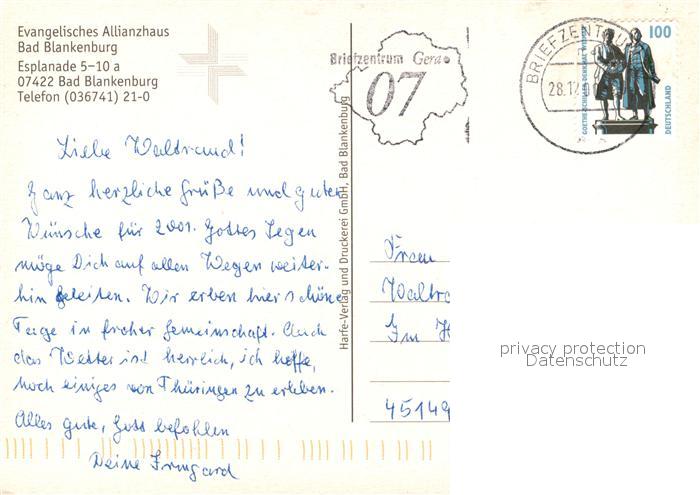 Evangelisches Allianzhaus
Bad Blankenburg
Esplanade 5–10 a
07422 Bad Blankenburg
Telefon (036741) 21-0
Briefzentrum Gera
07
BRIEFZENTRUM
28.12.
100
GOETHE-SCHILLER-DENKMAL WEIMAR
DEUTSCHLAND
Liebe Waltraud!
Ganz herzliche Grüße und guten
Wünsche für 2001. Gottes Segen
möge Dich auf allen Wegen weiter-
hin geleiten. Wir erleben hier schöne
Tage in froher Gemeinschaft. Auch
das Wetter ist herrlich, ich hoffe,
noch einiges von Thüringen zu erleben.
Alles Gute, Gott befohlen
Deine Irmgard
Harfe-Verlag und Druckerei GmbH, Bad Blankenburg
Frau
Waltra
Im H
45149
privacy protection
Datenschutz